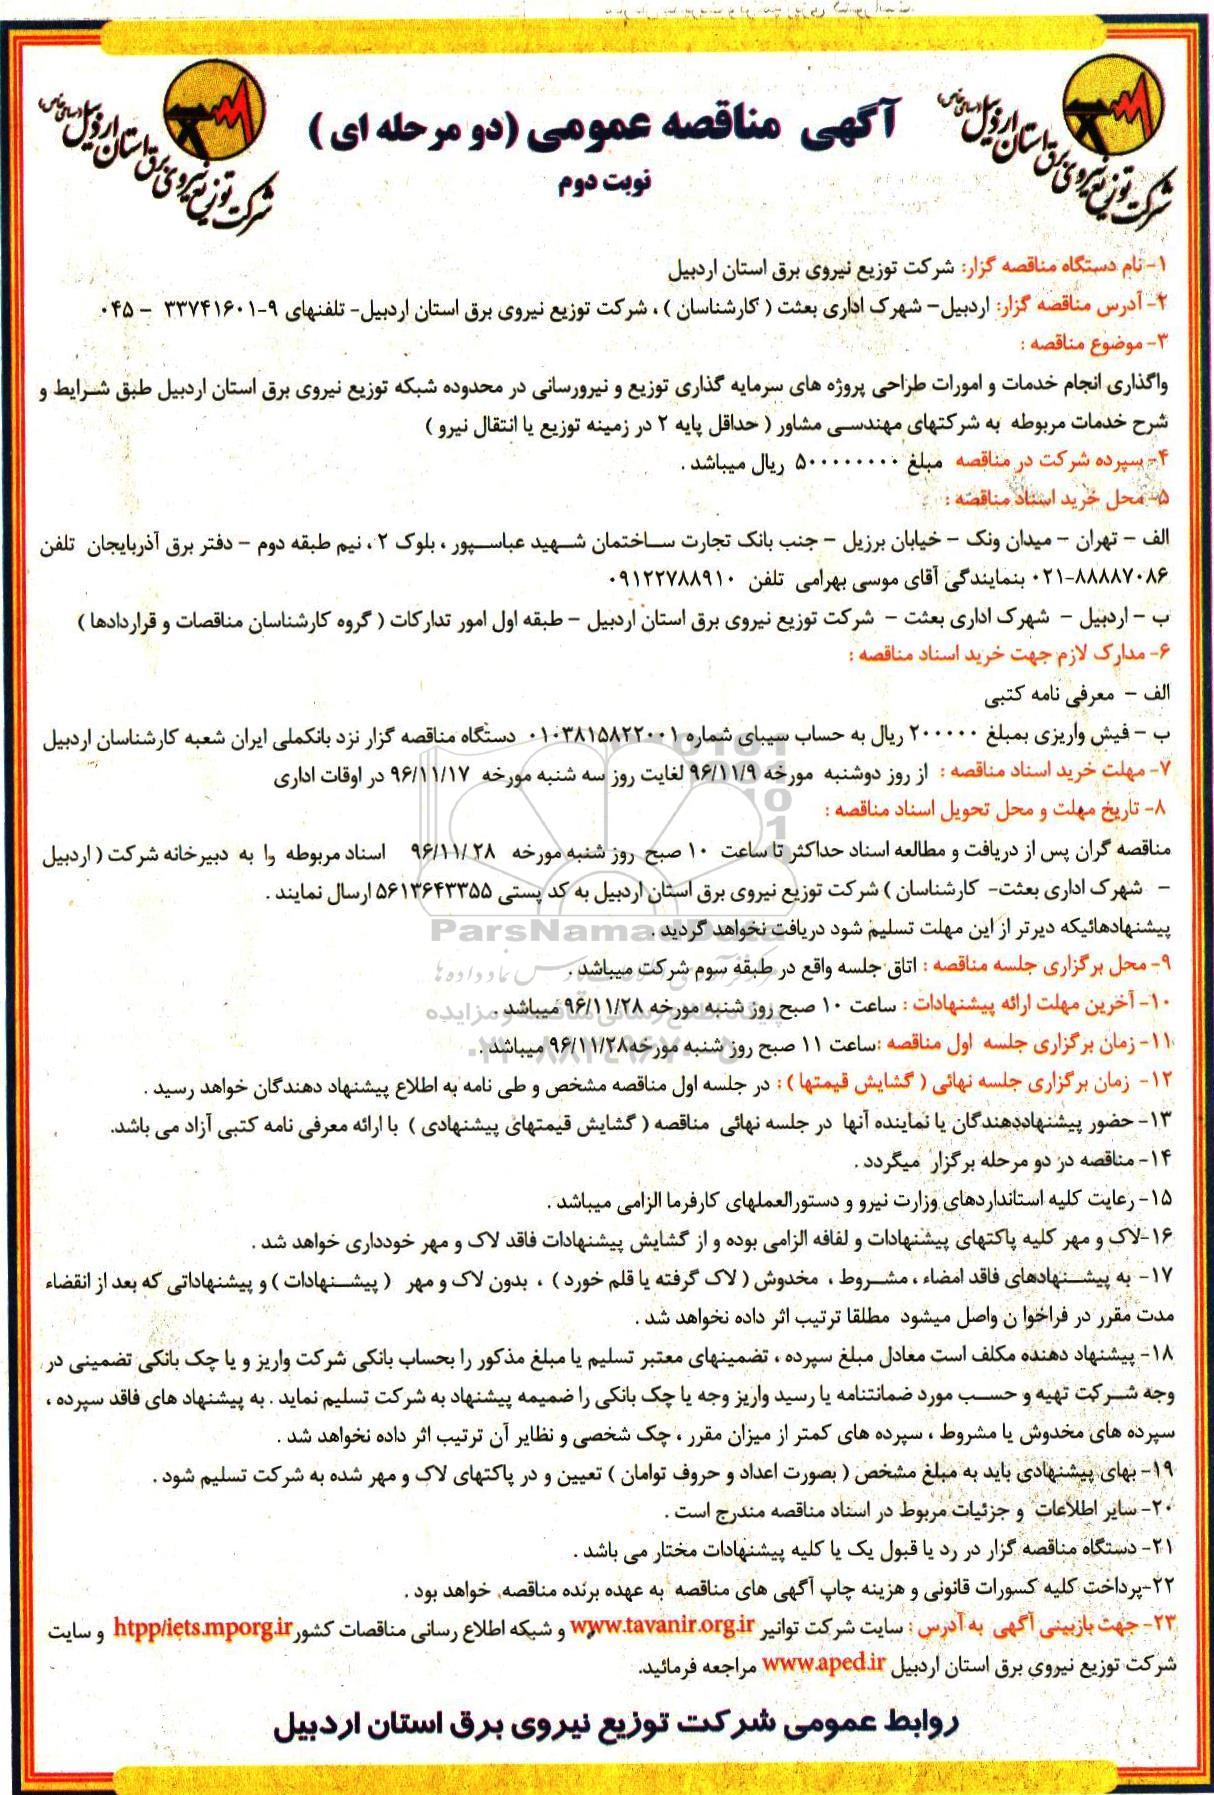 شرکت توزیع نیروی برق استان اردبیل (سهامی خاص)
شرکت توزیع نیروی برق استان اردبیل (سهامی خاص)
آگهی مناقصه عمومی (دو مرحله ای )
نوبت دوم
۱- نام دستگاه مناقصه گزار: شرکت توزیع نیروی برق استان اردبیل
۲- آدرس مناقصه گزار: اردبیل– شهرک اداری بعثت ( کارشناسان ) ، شرکت توزیع نیروی برق استان اردبیل- تلفنهای ۹-۳۳۷۴۱۶۰۱ – ۰۴۵
۳- موضوع مناقصه :
واگذاری انجام خدمات و امورات طراحی پروژه های سرمایه گذاری توزیع و نیرورسانی در محدوده شبکه توزیع نیروی برق استان اردبیل طبق شرایط و
شرح خدمات مربوطه به شرکتهای مهندسی مشاور ( حداقل پایه ۲ در زمینه توزیع یا انتقال نیرو )
۴- سپرده شرکت در مناقصه مبلغ ۵۰۰۰۰۰۰۰۰ ریال میباشد .
۵- محل خرید اسناد مناقصه :
الف – تهران – میدان ونک – خیابان برزیل – جنب بانک تجارت ساختمان شهید عباسپور ، بلوک ۲ ، نیم طبقه دوم – دفتر برق آذربایجان تلفن
۰۲۱-۸۸۸۸۷۰۸۶ بنمایندگی آقای موسی بهرامی تلفن ۰۹۱۲۲۷۸۸۹۱۰
ب – اردبیل – شهرک اداری بعثت – شرکت توزیع نیروی برق استان اردبیل – طبقه اول امور تدارکات ( گروه کارشناسان مناقصات و قراردادها )
۶- مدارک لازم جهت خرید اسناد مناقصه :
الف – معرفی نامه کتبی
ب – فیش واریزی بمبلغ ۲۰۰۰۰۰ ریال به حساب سیبای شماره ۰۱۰۳۸۱۵۸۲۲۰۰۱ دستگاه مناقصه گزار نزد بانکملی ایران شعبه کارشناسان اردبیل
۷- مهلت خرید اسناد مناقصه : از روز دوشنبه مورخه ۹۶/۱۱/۹ لغایت روز سه شنبه مورخه ۹۶/۱۱/۱۷ در اوقات اداری
۸- تاریخ مهلت و محل تحویل اسناد مناقصه :
مناقصه گران پس از دریافت و مطالعه اسناد حداکثر تا ساعت ۱۰ صبح روز شنبه مورخه ۹۶/۱۱/۲۸ اسناد مربوطه را به دبیرخانه شرکت ( اردبیل
– شهرک اداری بعثت- کارشناسان ) شرکت توزیع نیروی برق استان اردبیل به کد پستی ۵۶۱۳۶۴۳۳۵۵ ارسال نمایند .
پیشنهادهائیکه دیرتر از این مهلت تسلیم شود دریافت نخواهد گردید .
ParsNamadData
۹- محل برگزاری جلسه مناقصه : اتاق جلسه واقع در طبقه سوم شرکت میباشد .
۱۰- آخرین مهلت ارائه پیشنهادات : ساعت ۱۰ صبح روز شنبه مورخه ۹۶/۱۱/۲۸ میباشد .
۱۱- زمان برگزاری جلسه اول مناقصه :ساعت ۱۱ صبح روز شنبه مورخه۹۶/۱۱/۲۸ میباشد .
۱۲- زمان برگزاری جلسه نهائی ( گشایش قیمتها ) : در جلسه اول مناقصه مشخص و طی نامه به اطلاع پیشنهاد دهندگان خواهد رسید .
۱۳- حضور پیشنهاددهندگان یا نماینده آنها در جلسه نهائی مناقصه ( گشایش قیمتهای پیشنهادی ) با ارائه معرفی نامه کتبی آزاد می باشد.
۱۴- مناقصه در دو مرحله برگزار میگردد .
۱۵- رعایت کلیه استانداردهای وزارت نیرو و دستورالعملهای کارفرما الزامی میباشد .
۱۶-لاک و مهر کلیه پاکتهای پیشنهادات و لفافه الزامی بوده و از گشایش پیشنهادات فاقد لاک و مهر خودداری خواهد شد .
۱۷- به پیشنهادهای فاقد امضاء ، مشروط ، مخدوش ( لاک گرفته یا قلم خورد ) ، بدون لاک و مهر ( پیشنهادات ) و پیشنهاداتی که بعد از انقضاء
مدت مقرر در فراخوا ن واصل میشود مطلقا ترتیب اثر داده نخواهد شد .
۱۸- پیشنهاد دهنده مکلف است معادل مبلغ سپرده ، تضمینهای معتبر تسلیم یا مبلغ مذکور را بحساب بانکی شرکت واریز و یا چک بانکی تضمینی در
وجه شرکت تهیه و حسب مورد ضمانتنامه یا رسید واریز وجه یا چک بانکی را ضمیمه پیشنهاد به شرکت تسلیم نماید . به پیشنهاد های فاقد سپرده ،
سپرده های مخدوش یا مشروط ، سپرده های کمتر از میزان مقرر ، چک شخصی و نظایر آن ترتیب اثر داده نخواهد شد .
۱۹- بهای پیشنهادی باید به مبلغ مشخص ( بصورت اعداد و حروف توامان ) تعیین و در پاکتهای لاک و مهر شده به شرکت تسلیم شود .
۲۰- سایر اطلاعات و جزئیات مربوط در اسناد مناقصه مندرج است .
۲۱- دستگاه مناقصه گزار در رد یا قبول یک یا کلیه پیشنهادات مختار می باشد .
۲۲-پرداخت کلیه کسورات قانونی و هزینه چاپ آگهی های مناقصه به عهده برنده مناقصه خواهد بود .
۲۳- جهت بازبینی آگهی به آدرس : سایت شرکت توانیر www.tavanir.org.ir و شبکه اطلاع رسانی مناقصات کشور htpp/iets.mporg.ir و سایت
شرکت توزیع نیروی برق استان اردبیل www.aped.ir مراجعه فرمائید.
روابط عمومی شرکت توزیع نیروی برق استان اردبیل